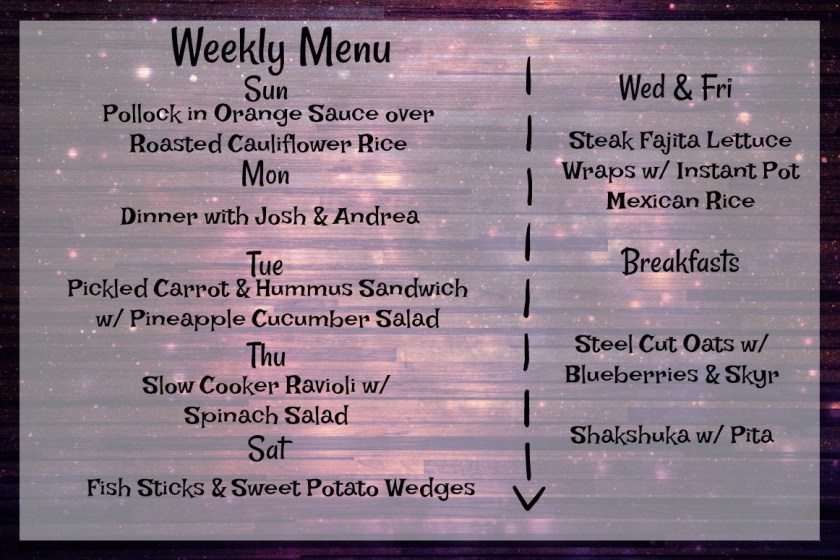 Weekly Menu
Sun
Pollock in Orange Sauce over
Roasted Cauliflower Rice
Mon
Dinner with Josh & Andrea
Tue
Pickled Carrot & Hummus Sandwich
w/ Pineapple Cucumber Salad
Thu
Slow Cooker Ravioli w/
Spinach Salad
Sat
Fish Sticks & Sweet Potato Wedges
Wed & Fri
Steak Fajita Lettuce
Wraps w/ Instant Pot
Mexican Rice
Breakfasts
Steel Cut Oats w/
Blueberries & Skyr
Shakshuka w/ Pita